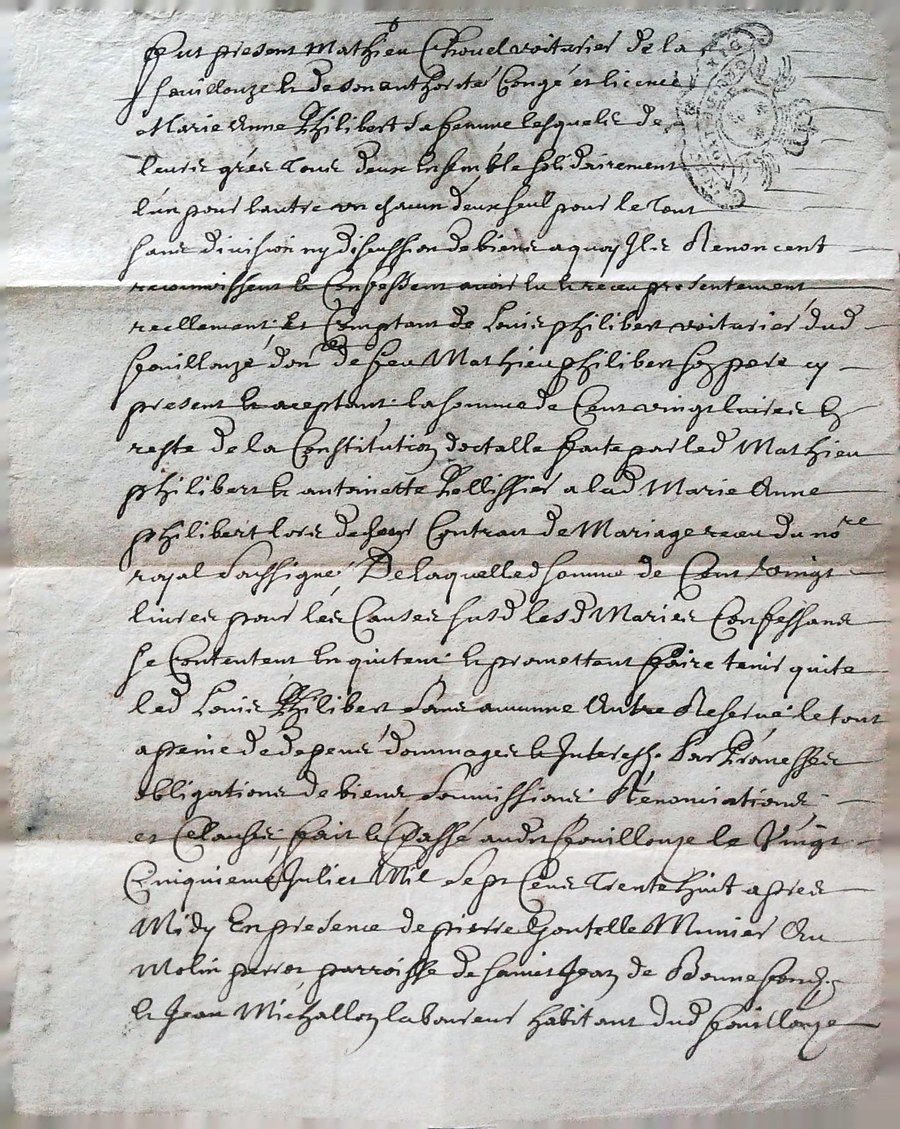 fut present Mathieu Chovel voiturier de la
fouillouze & de son authorité Congé et licence
Marie Anne Philibert sa femme lesquels de
leurs grés tous deux ensemble solidairement
l'un pour l'autre un chacun d'eux seul pour le tout
sans division ny discussion de biens a quoy Ils Renoncent
reconnoissent & Confessent avoir eu & receu presentement
reellement et Comptant de Louis philibert voiturier dud
fouillouze don.re de feu Mathieu philibert son pere cy
present & aceptant la somme de Cent vingt livres en
reste de la Constitution dotalle faite par led Mathieu
philibert & antoinette Pellissier a lad Marie Anne
philibert lors de Contrat de Mariage receu du no.re
royal soussigné De laquelled somme de Cent vingt
livres pour les Causes susd lesd Maries Confessans
se Contentent en quitent & promettent faire tenir quite
led Louis Philibert sans aucunne Autre Reserve le tout
a peine de depens dommages & Interests Par Promesses
obligations de biens soumissions Renonciations
et Clauses fait & Passé audit fouillouze le Vingt
Cinquieme Julliet Mil sept Cens Trente huit apres
Midy En presence de pierre Munier Au
Molin parroisse de saint Jean de Bonnefond
& Jean Michallon laboureur habitant dud fouillouze